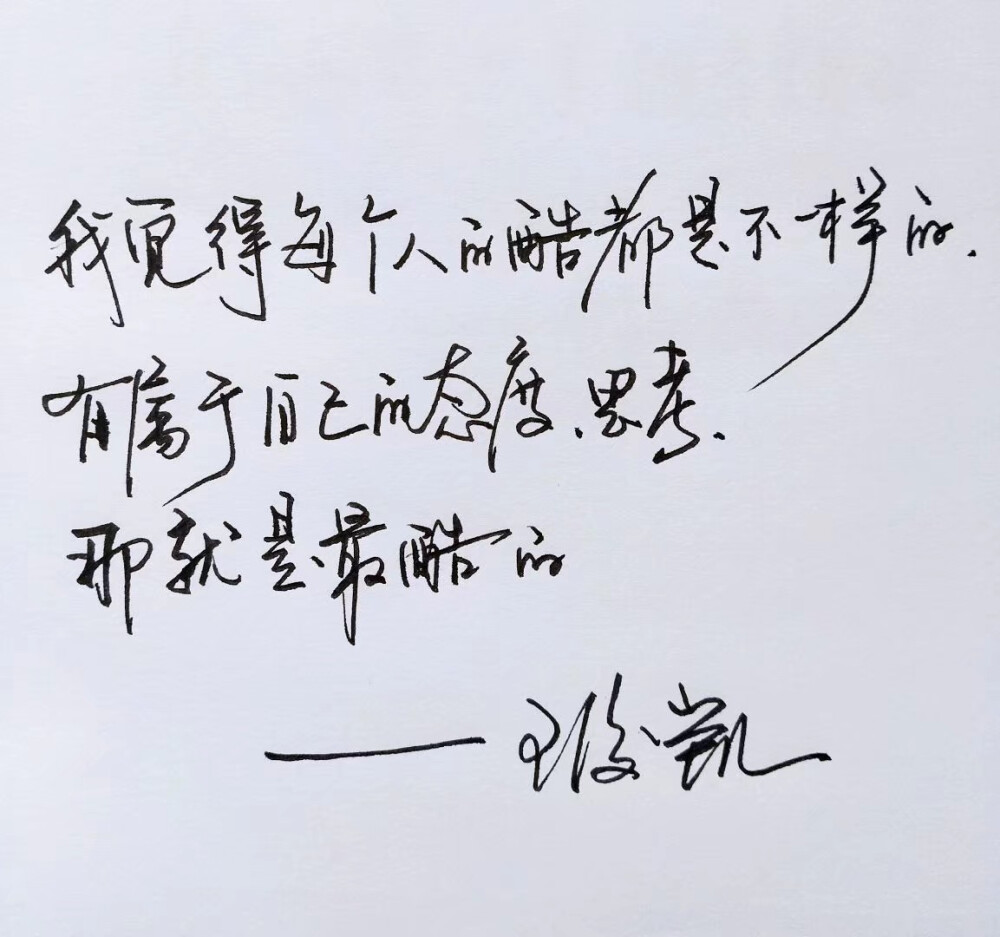 我觉得每个人的酷都是不一样的.
有属于自己的态度、思考.
那就是最酷的
——王俊凯